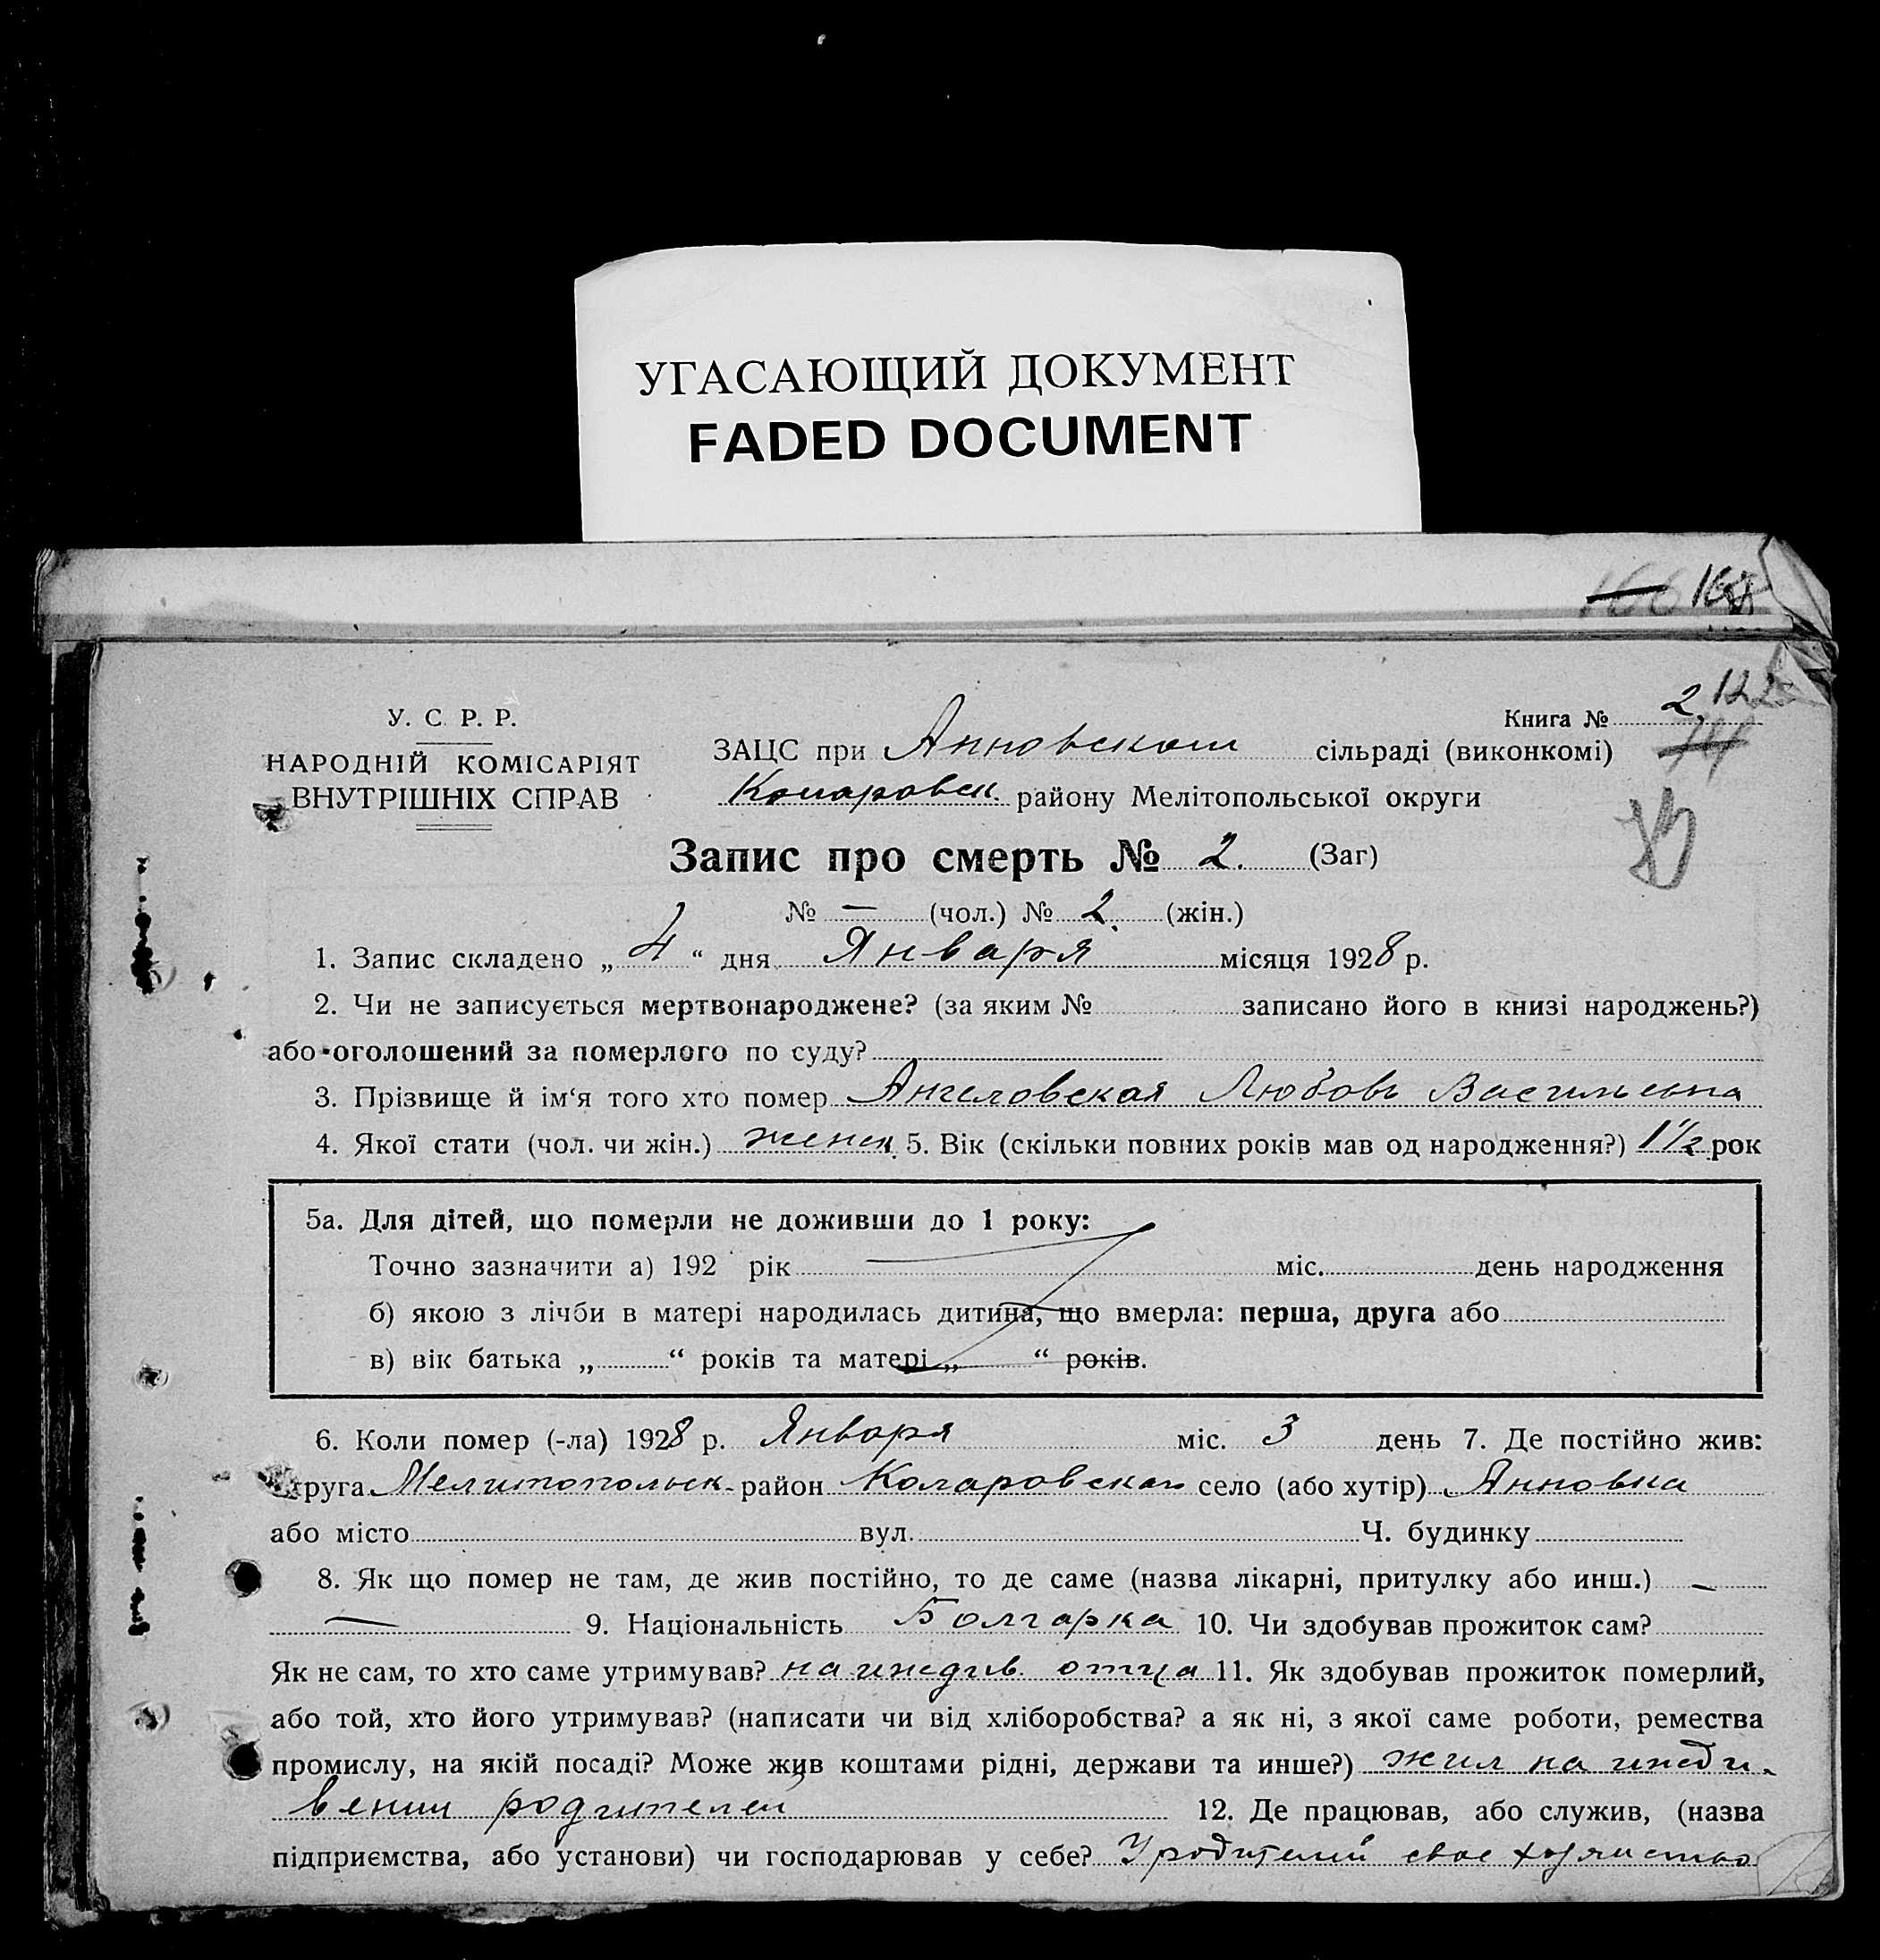 УГАСАЮЩИЙ ДОКУМЕНТ
FADED DOCUMENT
166 168
Книга № 2. 122
74
У. С. Р. Р.
НАРОДНІЙ КОМІСАРІЯТ
ВНУТРІШНІХ СПРАВ
ЗАЦС при Анновском сільраді (виконкомі)
Коларовск району Мелітопольської округи
Запис про смерть № 2. (Заг)
№ — (чол.) № 2. (жін.)
1. Запис складено „ 4 “ дня Января місяця 1928 р.
2. Чи не записується мертвонароджене? (за яким № записано його в книзі народжень?)
або оголошений за померлого по суду?
3. Прізвище й ім‘я того хто помер Ангеловская Любовь Васильевна
4. Якої стати (чол. чи жін.) женск. 5. Вік (скільки повних років мав од народження?) 1 1/2 рок
5а. Для дітей, що померли не доживши до 1 року:
Точно зазначити а) 192 рік — міс. день народження
б) якою з лічби в матері народилась дитина, що вмерла: перша, друга або
в) вік батька „ “ років та матері „ “ років.
6. Коли помер (-ла) 1928 р. Января міс. 3 день 7. Де постійно жив:
округа Мелитопольск- район Коларовском село (або хутір) Анновка
або місто вул. Ч. будинку
8. Як що помер не там, де жив постійно, то де саме (назва лікарні, притулку або инш.) —
— 9. Національність Болгарка 10. Чи здобував прожиток сам?
Як не сам, то хто саме утримував? на иждив. отца 11. Як здобував прожиток померлий,
або той, хто його утримував? (написати чи від хліборобства? а як ні, з якої саме роботи, ремества
промислу, на якій посаді? Може жив коштами рідні, держави та инше?) жил на ижди-
вении родителей 12. Де працював, або служив, (назва
підприємства, або установи) чи господарював у себе? У родителей свое хозяйство